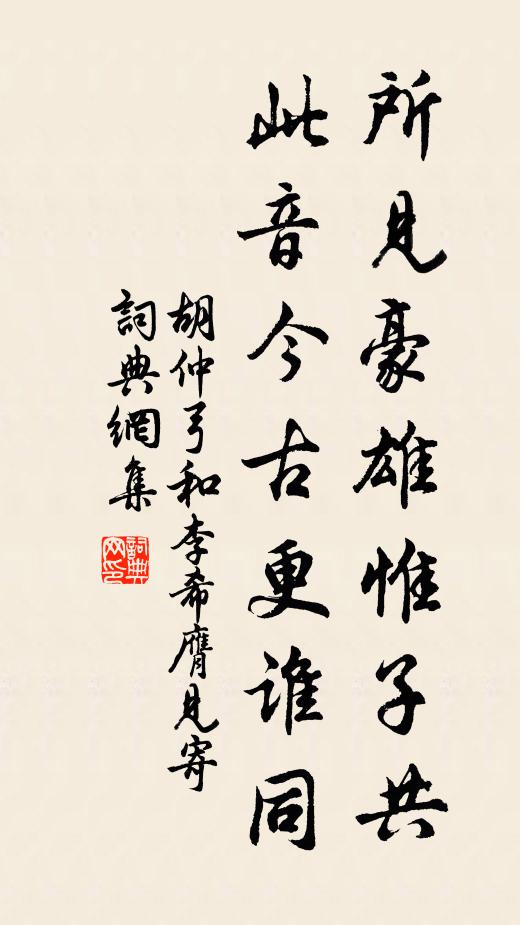 所見豪雄惟子共
此音今古更誰同
胡仲弓和李希膺見寄
詞典網集
詞典網印